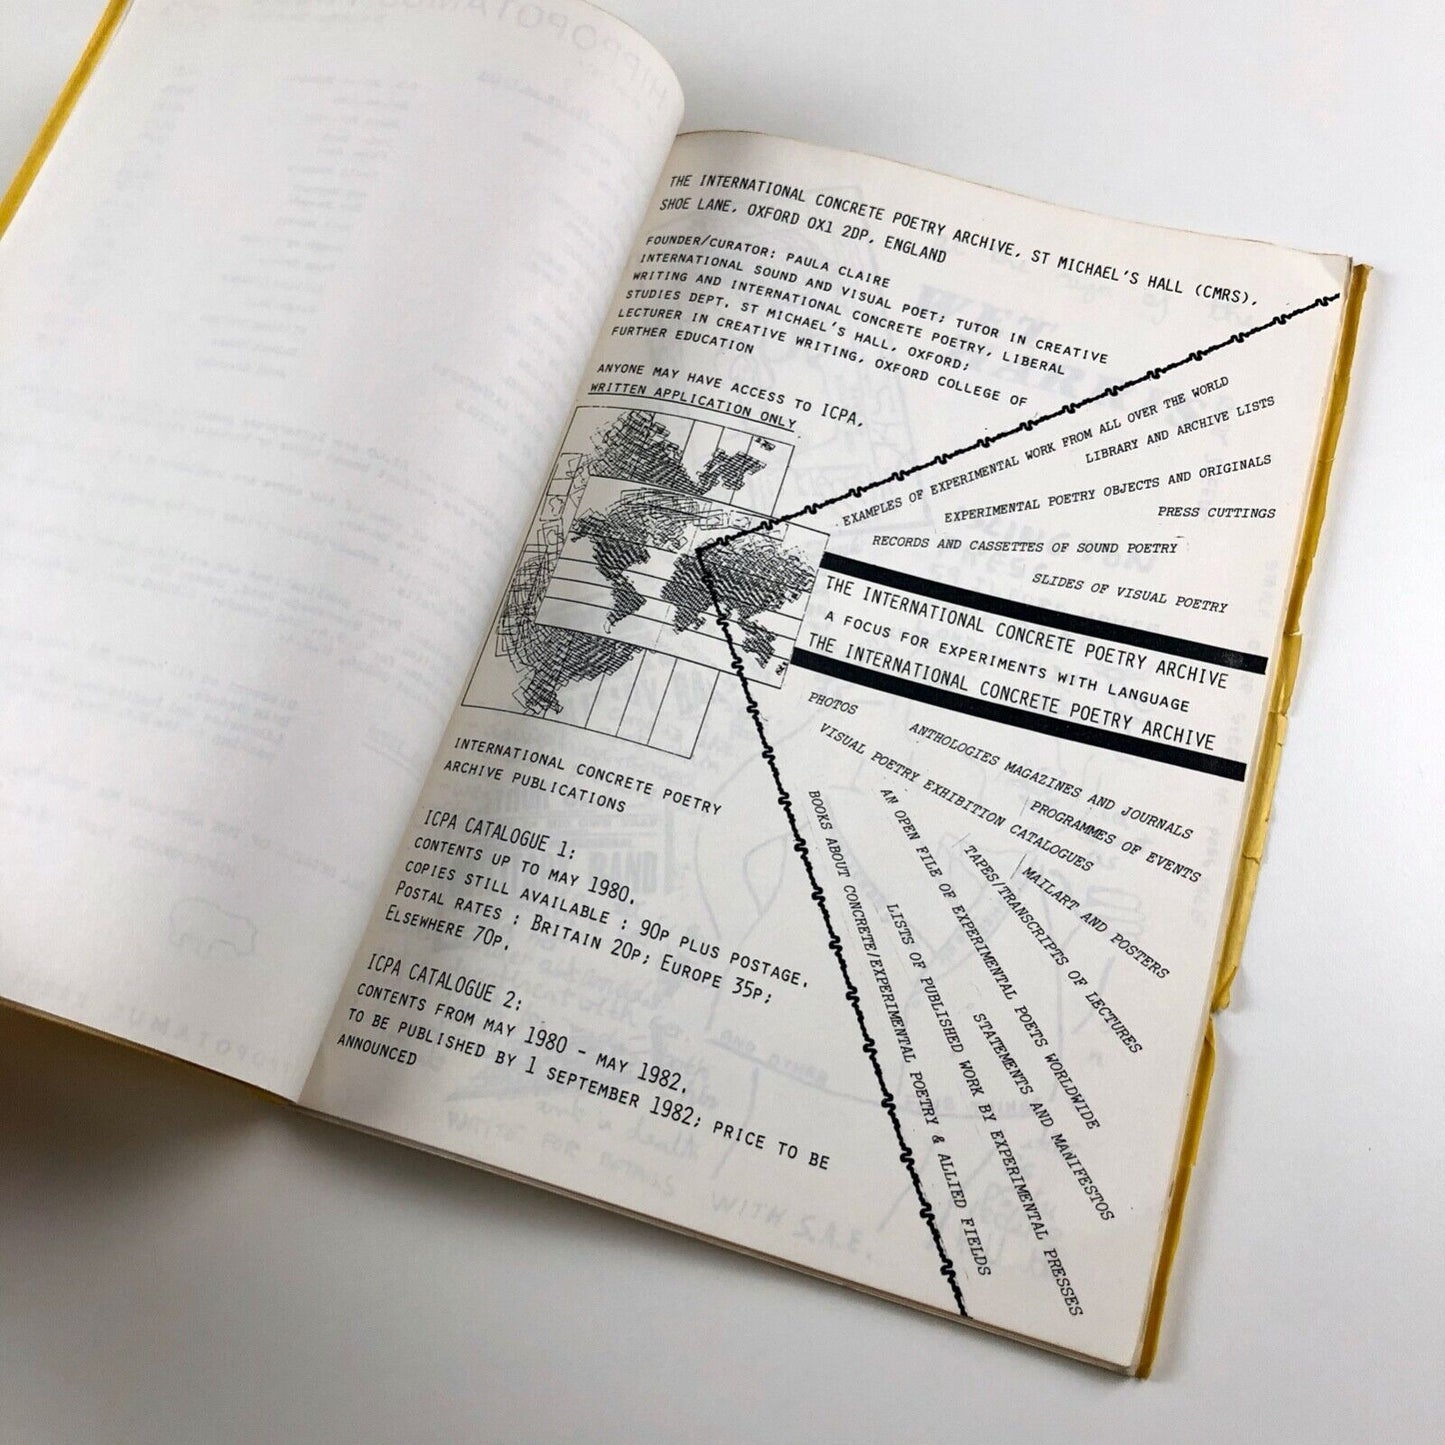 THE INTERNATIONAL CONCRETE POETRY ARCHIVE, ST MICHAEL'S HALL (CMRS),
SHOE LANE, OXFORD OX1 2DP, ENGLAND
FOUNDER/CURATOR: PAULA CLAIRE
INTERNATIONAL SOUND AND VISUAL POET; TUTOR IN CREATIVE
WRITING AND INTERNATIONAL CONCRETE POETRY, LIBERAL
STUDIES DEPT, ST MICHAEL'S HALL, OXFORD;
LECTURER IN CREATIVE WRITING, OXFORD COLLEGE OF
FURTHER EDUCATION
ANYONE MAY HAVE ACCESS TO ICPA,
WRITTEN APPLICATION ONLY
EXAMPLES OF EXPERIMENTAL WORK FROM ALL OVER THE WORLD
LIBRARY AND ARCHIVE LISTS
EXPERIMENTAL POETRY OBJECTS AND ORIGINALS
PRESS CUTTINGS
RECORDS AND CASSETTES OF SOUND POETRY
SLIDES OF VISUAL POETRY
THE INTERNATIONAL CONCRETE POETRY ARCHIVE
A FOCUS FOR EXPERIMENTS WITH LANGUAGE
THE INTERNATIONAL CONCRETE POETRY ARCHIVE
PHOTOS
ANTHOLOGIES MAGAZINES AND JOURNALS
PROGRAMMES OF EVENTS
VISUAL POETRY EXHIBITION CATALOGUES
MAILART AND POSTERS
TAPES/TRANSCRIPTS OF LECTURES
AN OPEN FILE OF EXPERIMENTAL POETS WORLDWIDE
STATEMENTS AND MANIFESTOS
LISTS OF PUBLISHED WORK BY EXPERIMENTAL PRESSES
BOOKS ABOUT CONCRETE/EXPERIMENTAL POETRY & ALLIED FIELDS
INTERNATIONAL CONCRETE POETRY
ARCHIVE PUBLICATIONS
ICPA CATALOGUE 1:
CONTENTS UP TO MAY 1980.
COPIES STILL AVAILABLE : 90P PLUS POSTAGE.
POSTAL RATES : BRITAIN 20P; EUROPE 35P;
ELSEWHERE 70P.
ICPA CATALOGUE 2:
CONTENTS FROM MAY 1980 - MAY 1982.
TO BE PUBLISHED BY 1 SEPTEMBER 1982; PRICE TO BE
ANNOUNCED